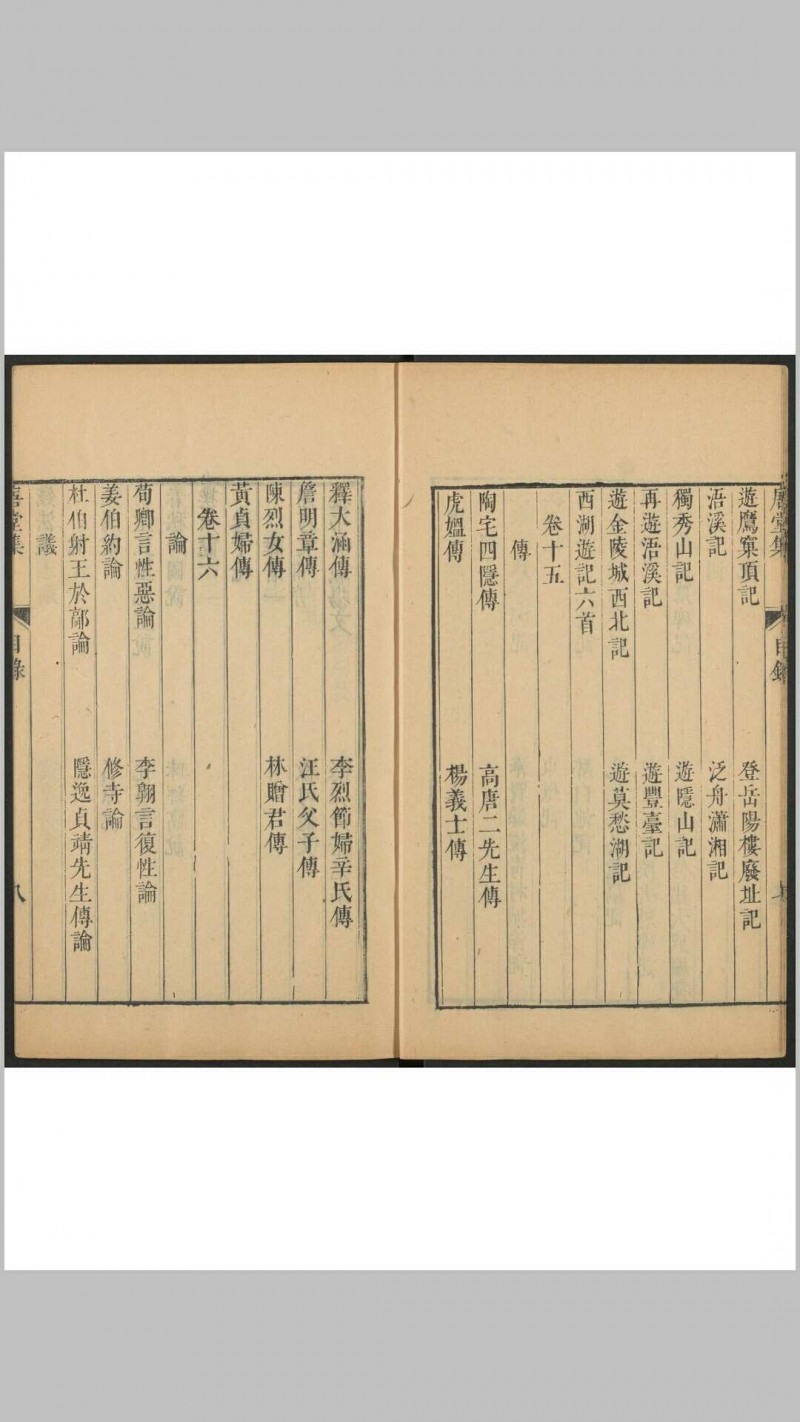 遊鷹窠頂記　登岳陽樓廢址記
浯溪記　泛舟瀟湘記
獨秀山記　遊隱山記
再遊浯溪記　遊豐臺記
遊金陵城西北記　遊莫愁湖記
西湖遊記六首
卷十五
傳
陶宅四隱傳　高唐二先生傳
虎媼傳　楊義士傳
釋大涵傳　李烈節婦辛氏傳
詹明章傳　汪氏父子傳
陳烈女傳　林贈君傳
黃貞婦傳
卷十六
論
荀卿言性惡論　李翶言復性論
姜伯約論　修寺論
杜伯射王於鄗論　隱逸貞靖先生傳論
議
堂集　目錄　八